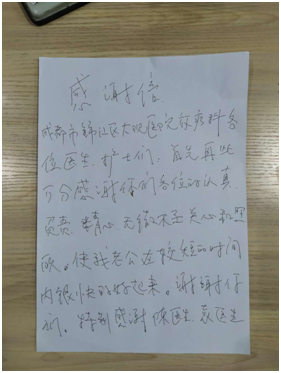 感谢信
成都市锦江区大观医院疼痛科各
位医生、护士们，首先再此
万分感谢你们各位的认真
负责 精心 无微不至关心和照
顾。使我老公在较短的时间
内很快的好起来。谢谢你
们。特别感谢 陈医生 袁医生